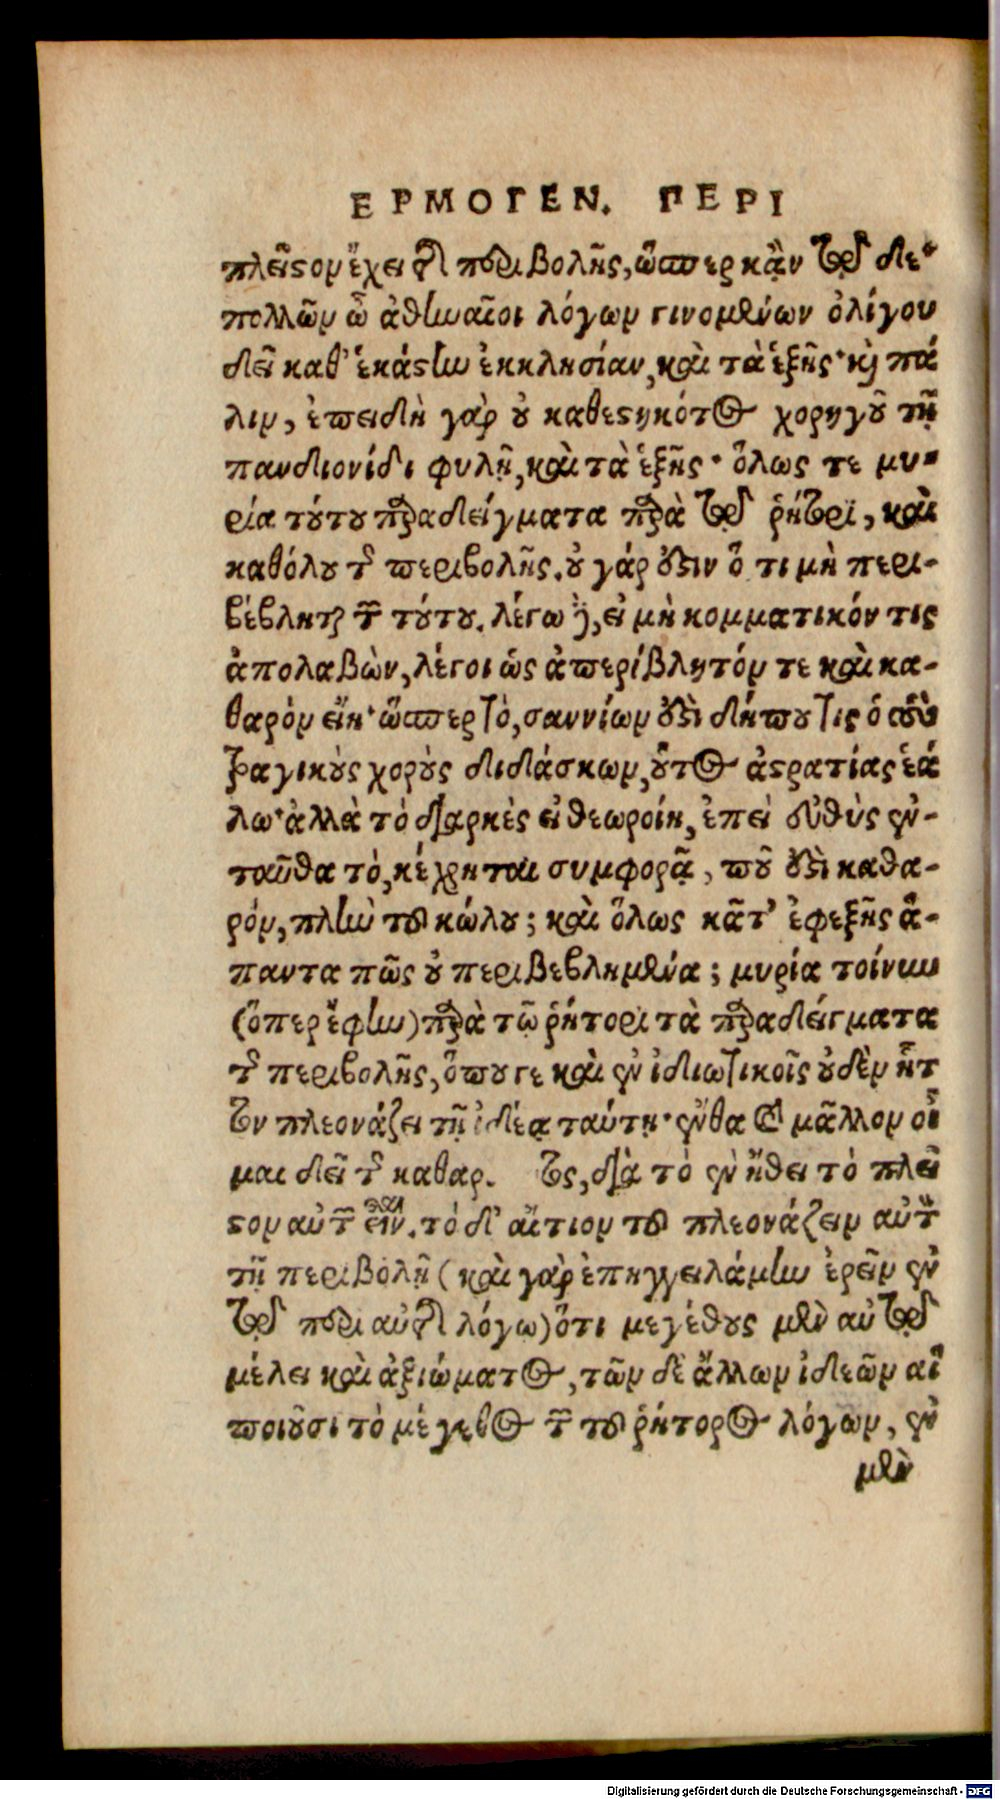 ΕΡΜΟΓΕΝ. ΠΕΡΙ
πλεῖστον ἔχει τῆς περιβολῆς, ὥσπερ κἀν τῷ δε·
πολλῶν ὦ ἀθηναῖοι λόγων γινομένων ὀλίγου
δεῖ καθ' ἑκάστην ἐκκλησίαν, καὶ τὰ ἑξῆς· καὶ πά
λιν, ἐπειδὴ γὰρ οὐ καθεστηκότος χορηγοῦ τῇ
πανδιονίδι φυλῇ, καὶ τὰ ἑξῆς· ὅλως τε μυ-
ρία τούτου παραδείγματα παρὰ τῷ ῥήτορι, καὶ
καθόλου τῆς περιβολῆς. οὐ γάρ ἐστιν ὅ τι μὴ περι-
βέβληται τῶν τούτου. λέγω δὲ, εἰ μὴ κομματικόν τις
ἀπολαβὼν, λέγοι ὡς ἀπερίβλητόν τε καὶ κα-
θαρὸν εἴη· ὥσπερ τὸ, σαννίων ἐστὶ δήπου τις ὁ τοὺς
τραγικοὺς χοροὺς διδάσκων, οὗτος ἀστρατίας ἑά
λω· ἀλλὰ τὸ διαρκὲς εἰ θεωροίη, ἐπεὶ εὐθὺς ἐν-
ταῦθα τὸ, κέχρηται συμφορᾷ, ποῦ ἐστὶ καθα-
ρόν, πλὴν τοῦ κώλου; καὶ ὅλως κᾆτ' ἐφεξῆς ἅ-
παντα πῶς οὐ περιβεβλημένα; μυρία τοίνυν
(ὅπερ ἔφην) παρὰ τῷ ῥήτορι τὰ παραδείγματα
τῆς περιβολῆς, ὅπου γε καὶ ἐν ἰδιωτικοῖς οὐδὲν ἧτ
τον πλεονάζει τῇ ἰδέᾳ ταύτῃ· ἔνθα καὶ μᾶλλον οἶ
μαι δεῖ τῆς καθαρ. τος, διὰ τὸ ἐν ἤθει τὸ πλεῖ
στον αὐτῶν εἶναι. τὸ δ' αἴτιον τοῦ πλεονάζειν αὐτὸν
τῇ περιβολῇ (καὶ γὰρ ἐπηγγειλάμην ἐρεῖν ἐν
τῷ περὶ αὐτῆς λόγῳ) ὅτι μεγέθους μὲν αὐτῷ
μέλει καὶ ἀξιώματος, τῶν δὲ ἄλλων ἰδεῶν αἳ
ποιοῦσι τὸ μέγεθος τῶν τοῦ ῥήτορος λόγων, ἐν
μὲν
Digitalisierung gefördert durch die Deutsche Forschungsgemeinschaft - DFG